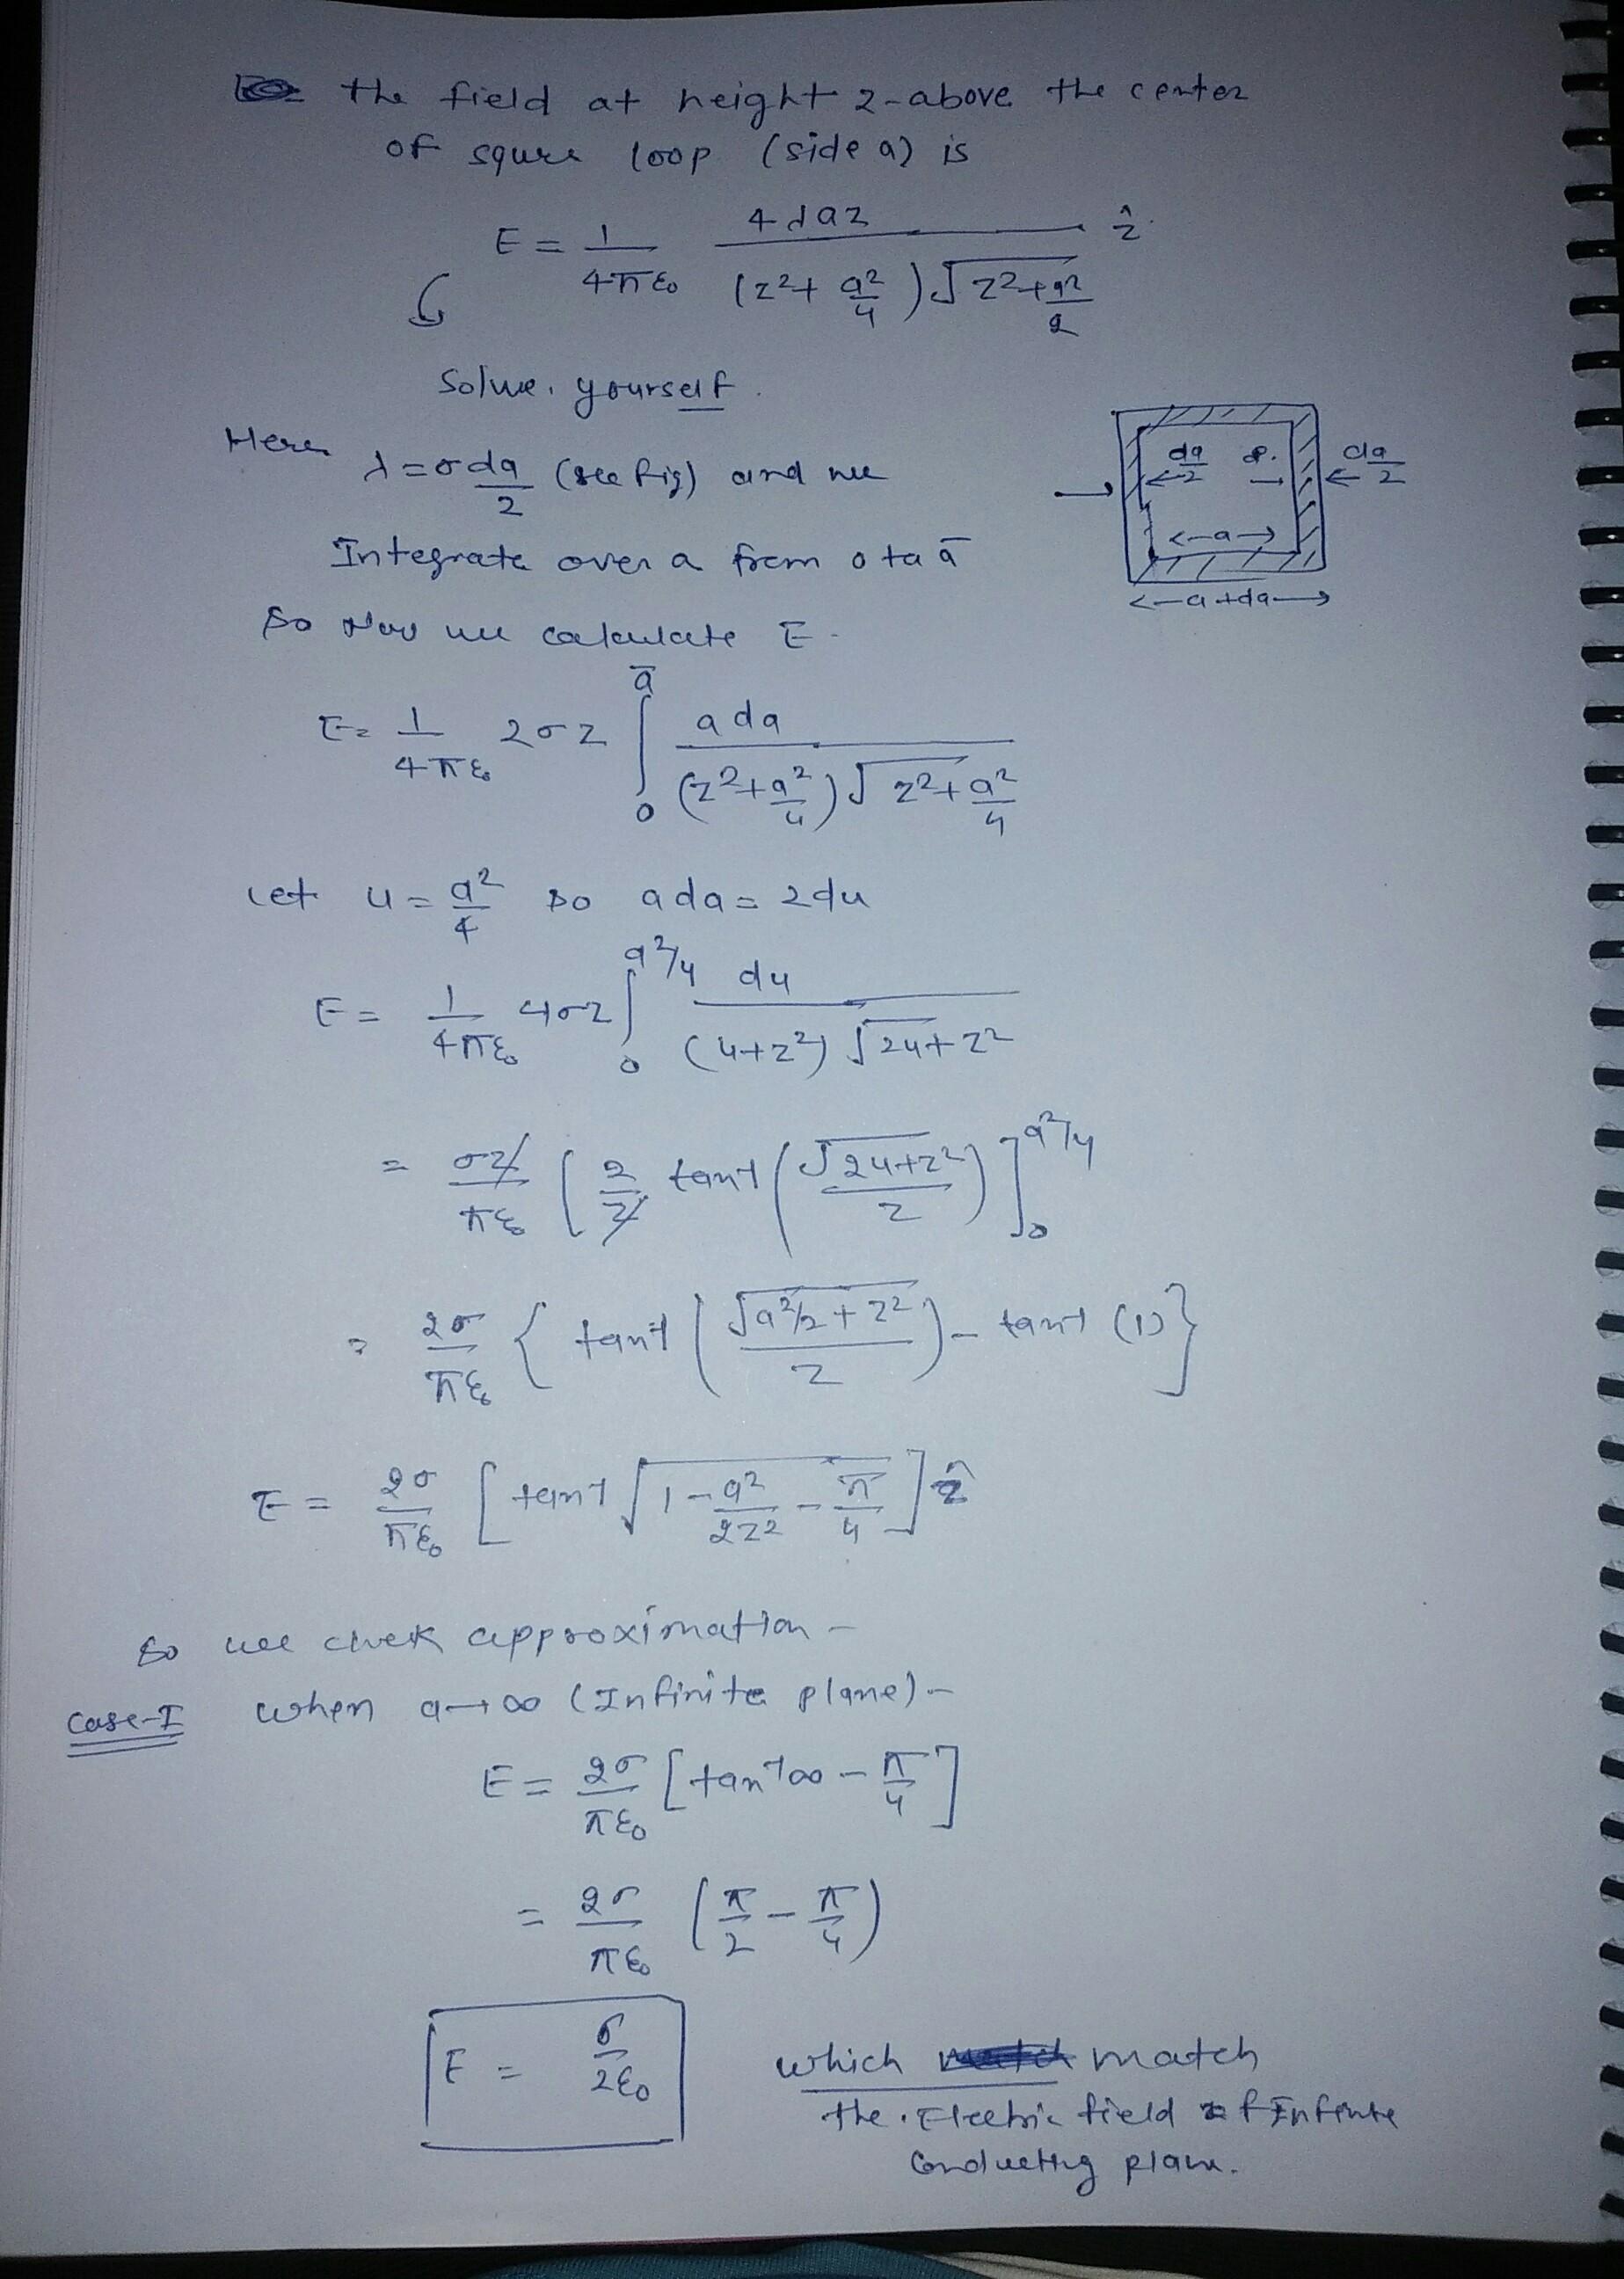 the field at height z-above the center
of squre loop (side a) is
E = 1/4πε₀ 4λaz/(z²+a²/4)√z²+a²/2 ẑ
Solve yourself.
Here λ=σ da/2 (see fig) and we
Integrate over a from 0 to ā
da/2 P. da/2
←a→
←a+da→
So Now we calculate E-
E= 1/4πε₀ 2σz ∫₀^ā a da/(z²+a²/4)√z²+a²/4
let u=a²/4 so a da=2du
E= 1/4πε₀ 4σz ∫₀^a²/4 du/(u+z²)√2u+z²
= σz/πε₀ [2/z tan⁻¹(√2u+z²/z)]₀^a²/4
= 2σ/πε₀ {tan⁻¹(√a²/2+z²/z)-tan⁻¹(1)}
E= 2σ/πε₀ [tan⁻¹√1-a²/2z²-π/4]ẑ
So we chek approximation-
Case-I when a→∞ (Infinite plane)-
E= 2σ/πε₀ [tan⁻¹∞-π/4]
= 2σ/πε₀ (π/2-π/4)
E = σ/2ε₀ which match
the Electric field of Infinte
Conducting plane.